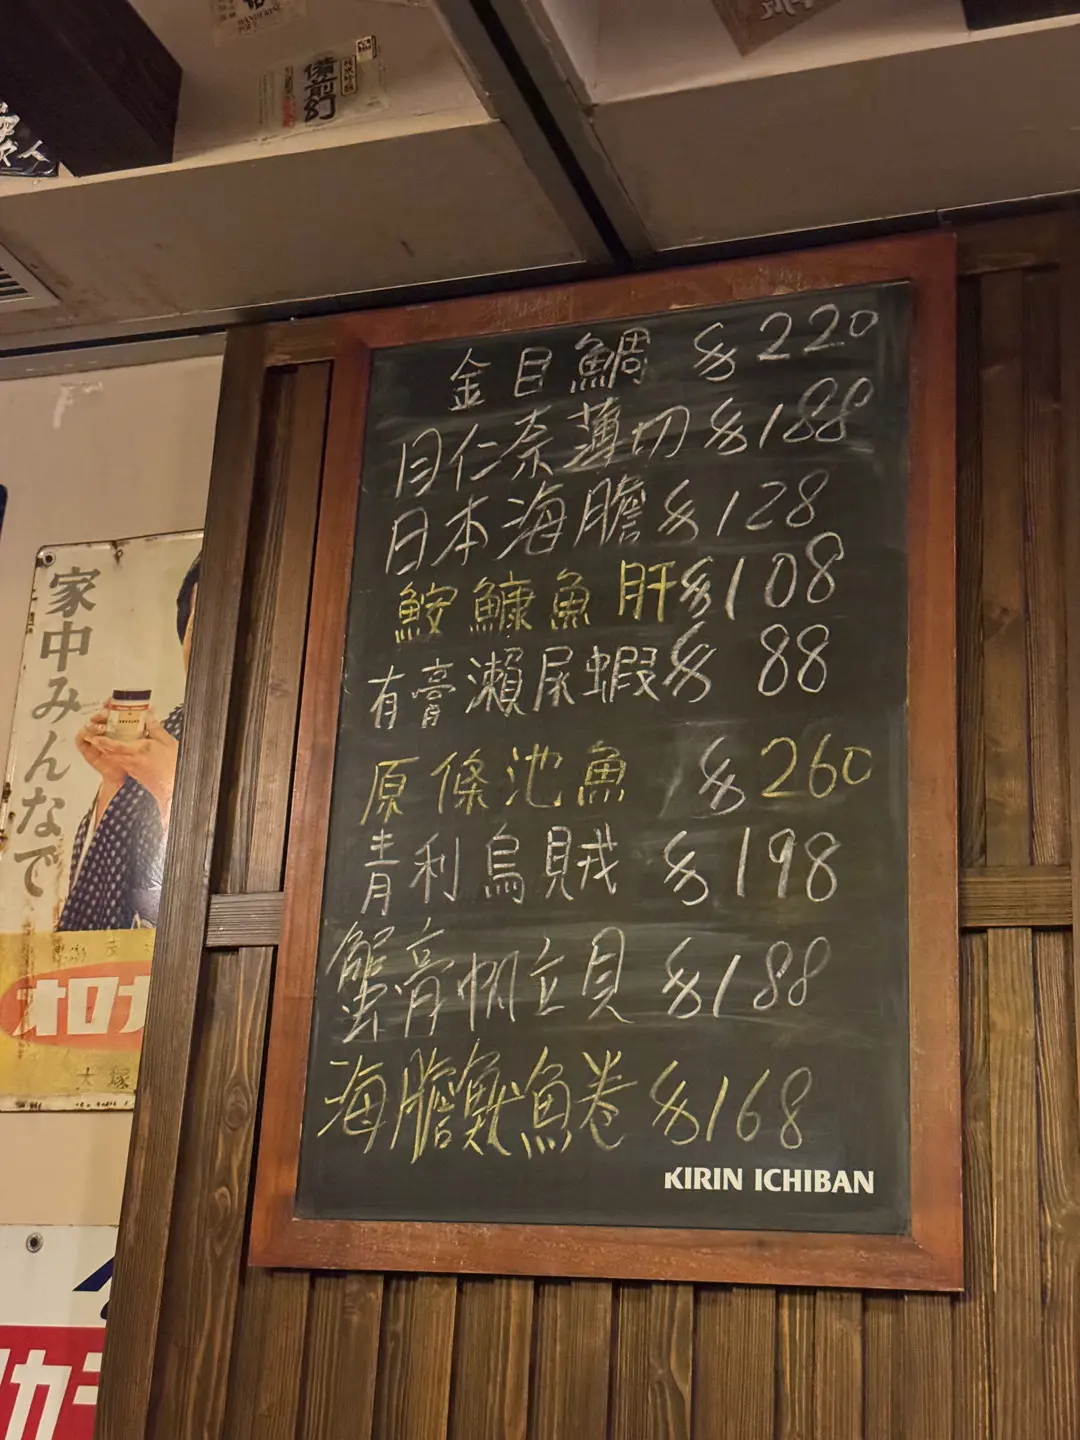 備前幻
金目鯛 $220
目仁奈薄切 $188
日本海膽 $128
鮟鱇魚肝 $108
有膏瀨尿蝦 $88
原條池魚 $260
青利烏賊 $198
蟹膏帆立貝 $188
海膽魷魚卷 $168
KIRIN ICHIBAN
家中みんなで
オロナ
大塚